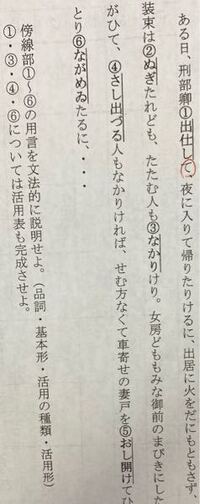 ある日、刑部卿①出仕して、夜に入りて帰りたりけるに、出居に火をだにもともさず、
装束は②ぬぎたれども、たたむ人も③なかりけり。女房どももみな御前のまびきにした
がひて、④さし出づる人もなかりければ、せむ方なくて車寄せの妻戸を⑤おし開けてひ
とり⑥ながめゐたるに、・・・
傍線部①〜⑥の用言を文法的に説明せよ。(品詞・基本形・活用の種類・活用形)
①・③・④・⑥については活用表も完成させよ。